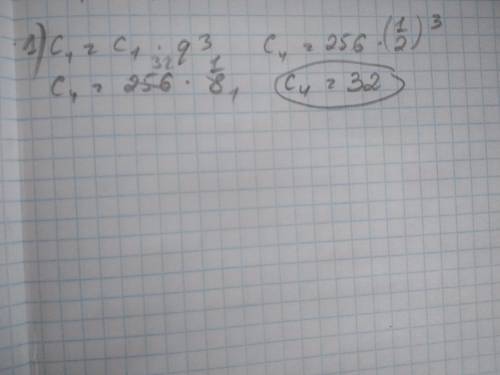 1) C₁ = C₁ · q³   C₄ = 256 · (1/2)³
C₄ = 256 · 1/8, 32 1   C₄ = 32